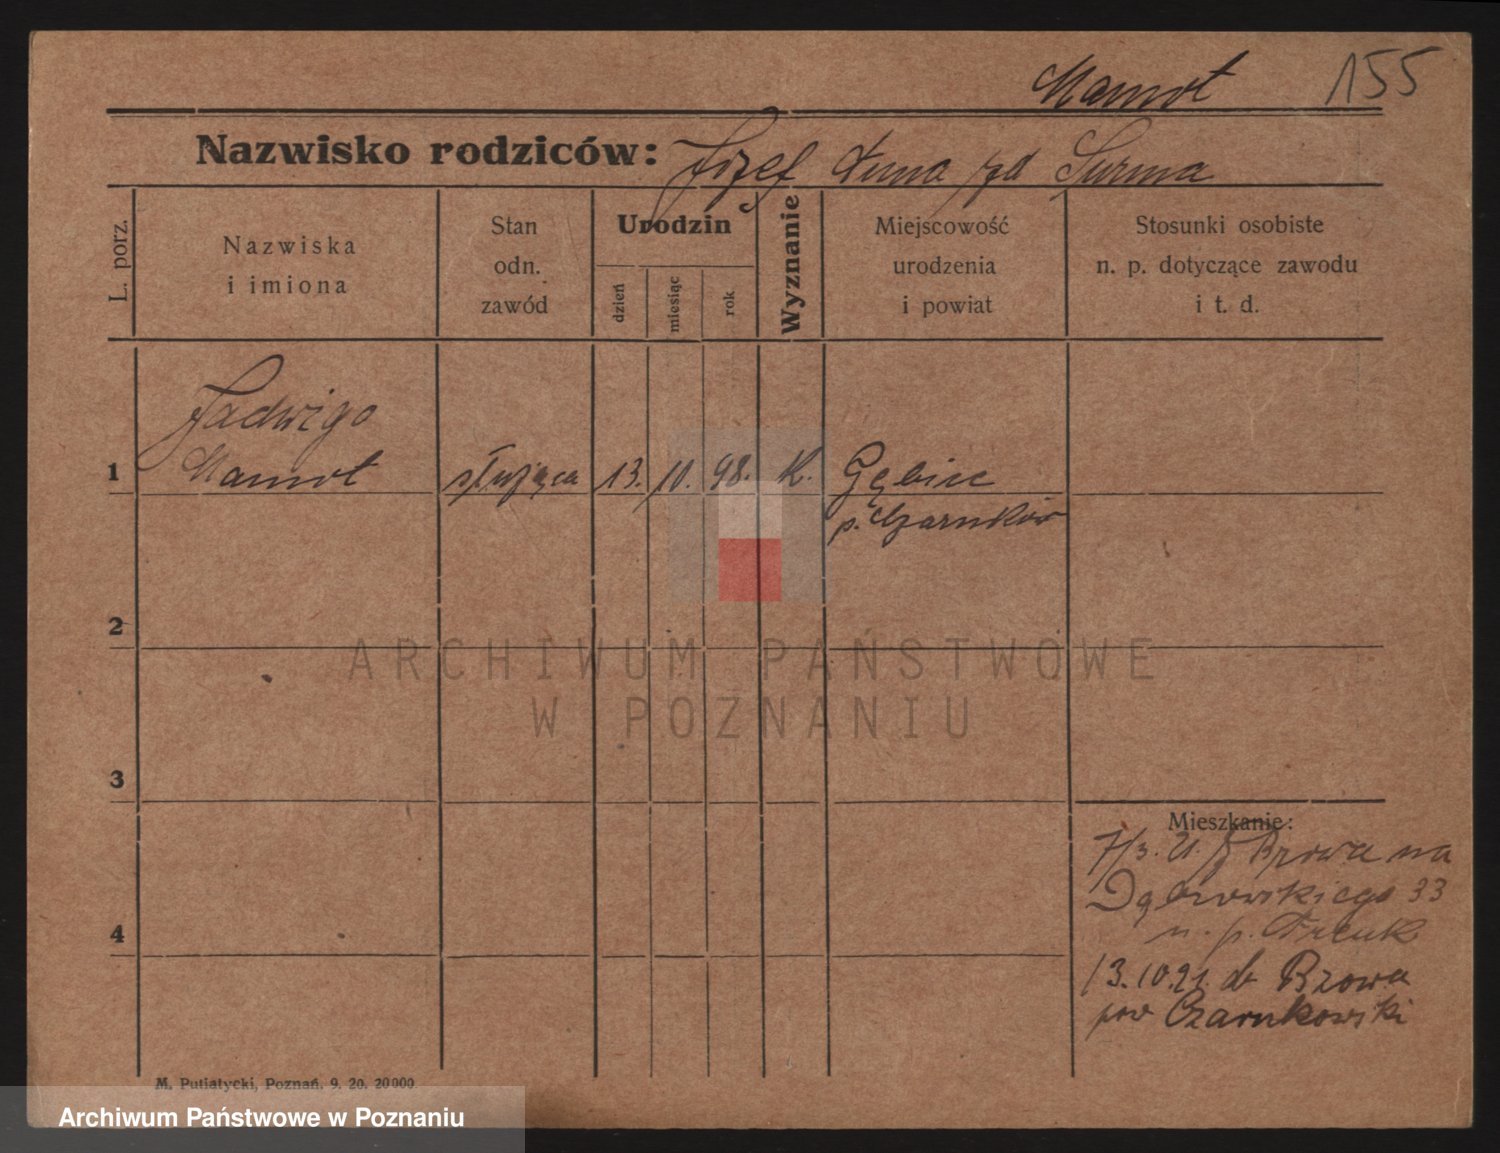 Mamot 155
Nazwisko rodziców: Józef Anna zd Surma
L. porz.
Nazwiska
i imiona
Stan
odn.
zawód
Urodzin
dzień
miesiąc
rok
Wyznanie
Miejscowość
urodzenia
i powiat
Stosunki osobiste
n. p. dotyczące zawodu
i t. d.
Jadwiga
1 Mamot służąca 13. 10. 98. K. Gębice
p. Czarnków
2
3
4
Mieszkanie:
7/3. 21. z Brzowa na
Dąbrowskiego 33
u. p.
13.10.21. do Brzowa
pow Czarnkowski
M. Putiatycki, Poznań. 9. 20. 20000.
ARCHIWUM PAŃSTWOWE
W POZNANIU
Archiwum Państwowe w Poznaniu